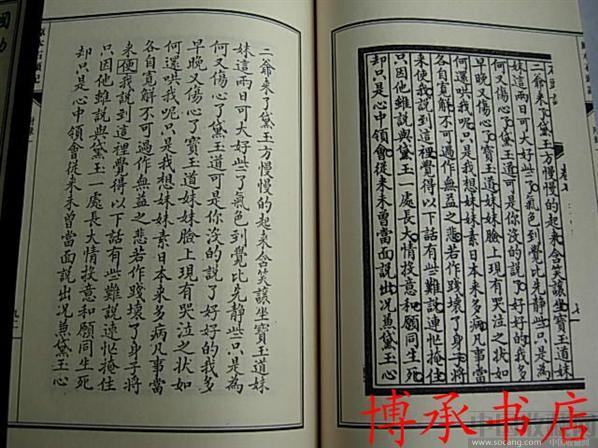 二爺来了黛玉方慢慢的起来含笑讓坐寶玉道妹
妹這兩日可大好些了氣色到覺比先静些只是為
何又傷心了黛玉道可是你沒的說了好好的我多
早晚又傷心了寶玉道妹妹臉上現有哭泣之狀如
何還哄我呢只是我想妹妹素日本来多病凡事當
各自寬解不可過作無益之悲若作踐壞了身子將
来使我說到這裡覺得以下話有些難說連忙掩住
只因他雖說與黛玉一處長大情投意和願同生死
却只是心中領會從来未曾當面說出况兼黛玉心
二爺来了黛玉方慢慢的起来含笑讓坐寶玉道妹
妹這兩日可大好些了氣色到覺比先静些只是為
何又傷心了黛玉道可是你沒的說了好好的我多
早晚又傷心了寶玉道妹妹臉上現有哭泣之狀如
何還哄我呢只是我想妹妹素日本来多病凡事當
各自寬解不可過作無益之悲若作踐壞了身子將
来使我說到這裡覺得以下話有些難說連忙掩住
只因他雖說與黛玉一處長大情投意和願同生死
却只是心中領會從来未曾當面說出况兼黛玉心
博承书店
www.socang.com